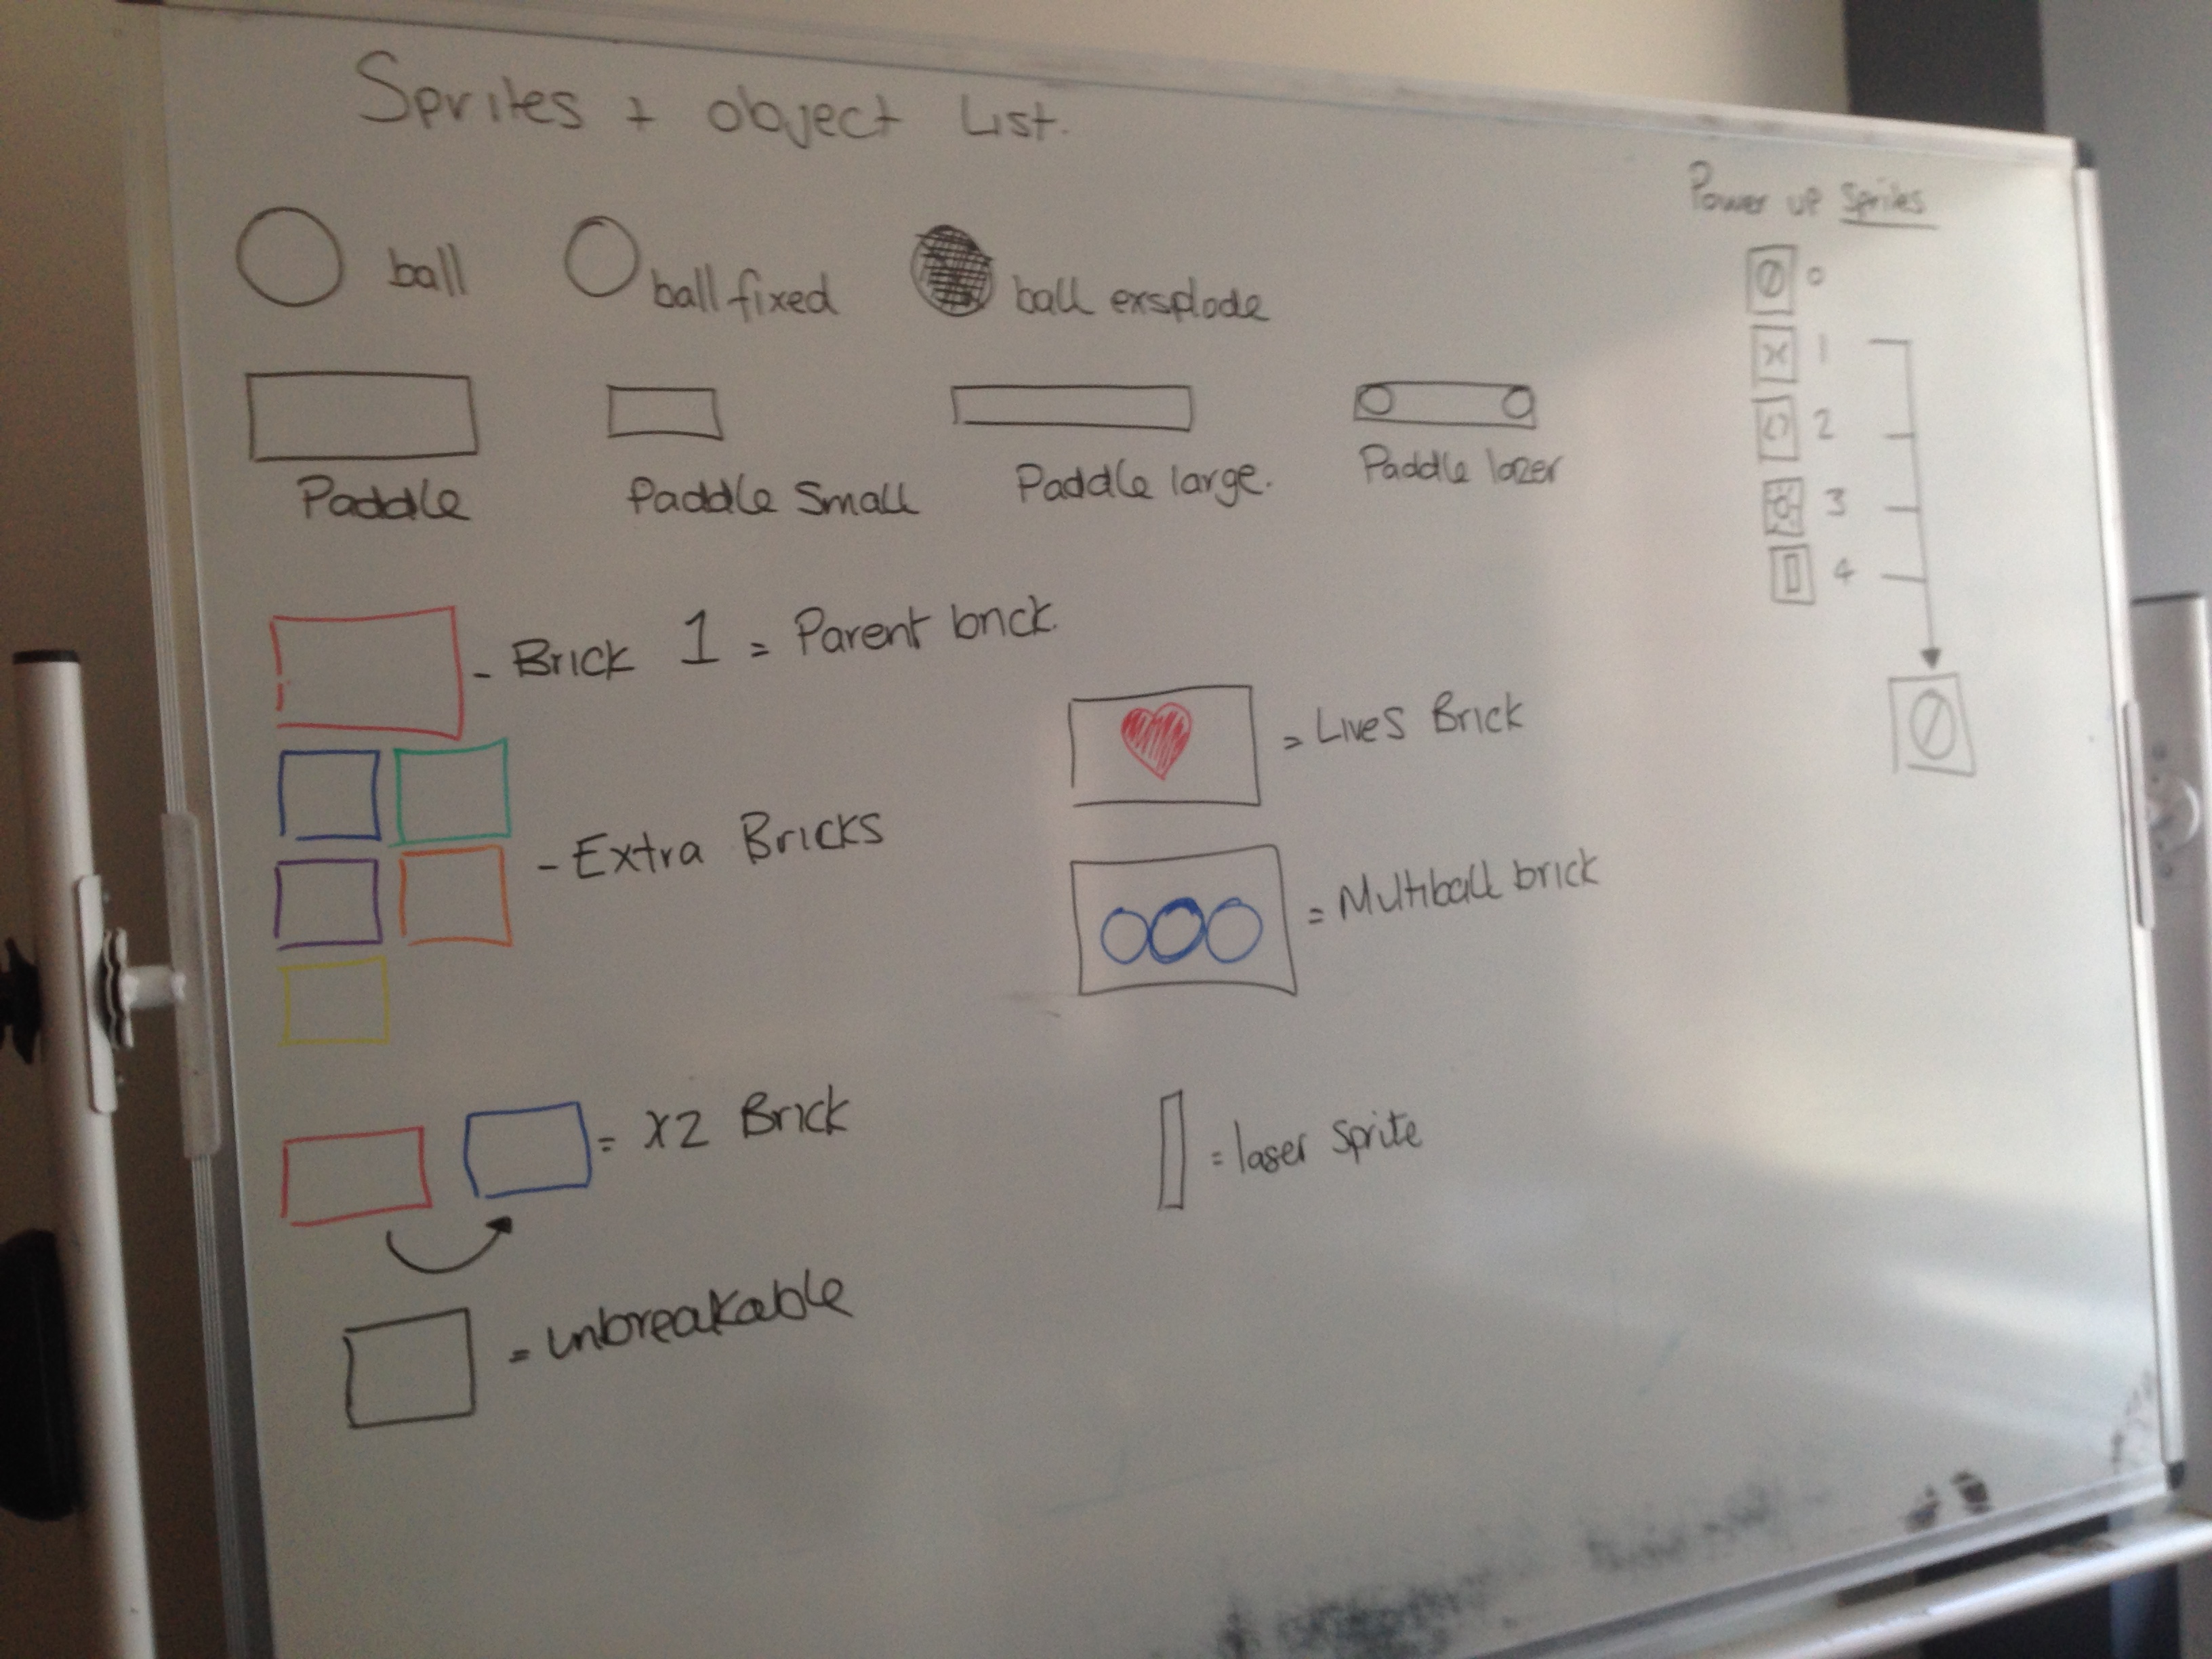 Sprites + object List.
Power up Sprites
ball
ball fixed
ball exsplode
0
1
2
3
4
Paddle
Paddle Small
Paddle large.
Paddle lazer
- Brick 1 = Parent brick.
- Extra Bricks
= Lives Brick
= Multiball brick
= X2 Brick
= laser Sprite
= unbreakable